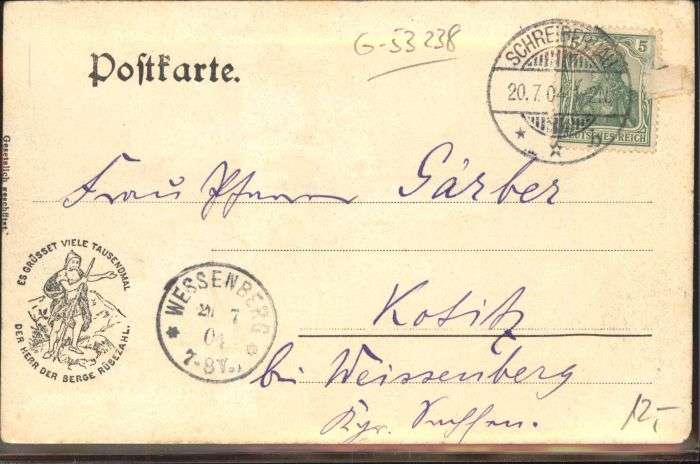 G-53238
Postkarte.
SCHREIBERHAU
20.7.04
5
DEUTSCHES REICH
b
Gesetzlich geschützt.
Frau Pfarrer Gärber
ES GRÜSSET VIELE TAUSENDMAL
DER HERR DER BERGE RÜBEZAHL.
WEISSENBERG
21 7
04
7-8V.
Kotitz
bei Weissenberg
Kgr. Sachsen.
12,-